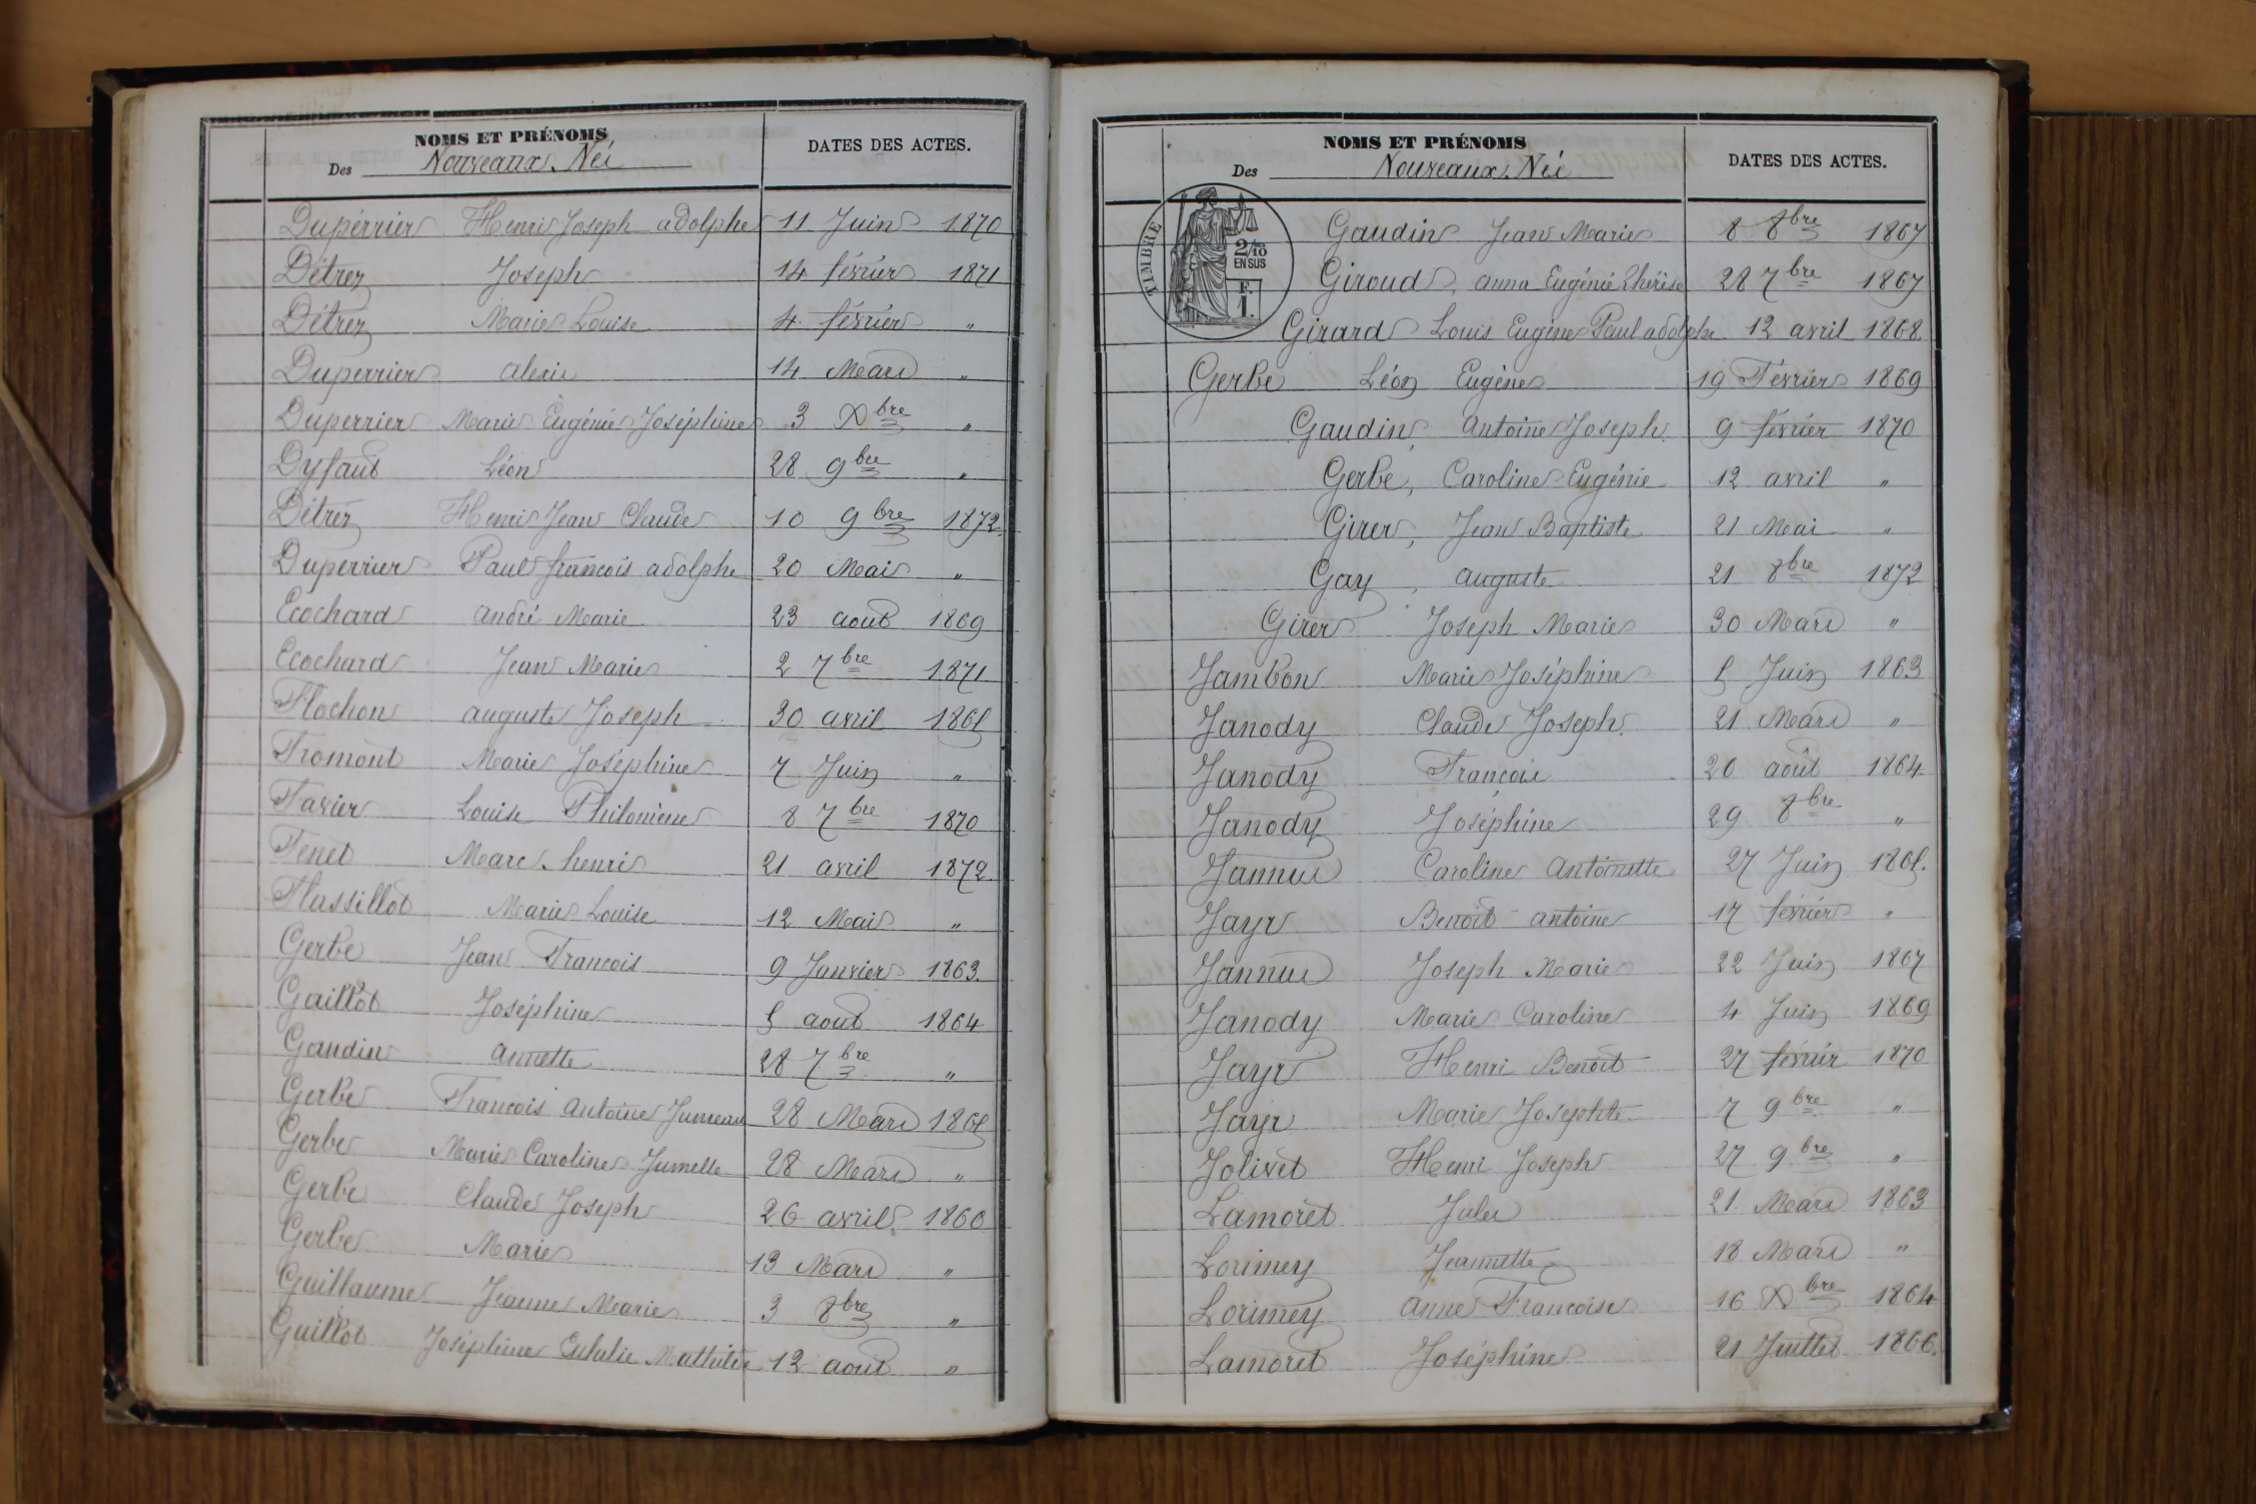 NOMS ET PRÉNOMS
Des Nouveaux Né
DATES DES ACTES.
Duperrier Henri Joseph adolphe 11 Juin 1870
Détrez Joseph 14 février 1871
Détrez Marie Louise 4 février "
Duperrier alexis 14 Mars "
Duperrier Marie Eugénie Joséphine 3 Xbre "
Dyfaut Léon 28 9bre "
Détrez Henri Jean Claude 10 9bre 1872
Duperrier Paul françois adolphe 20 Mai "
Ecochard andré Marie 23 aout 1869
Ecochard Jean Marie 2 7bre 1871
Flochon auguste Joseph 30 avril 1865
Fromont Marie Joséphine 7 Juin "
Favier Louise Philomène 8 7bre 1870
Fenet Marc henri 21 avril 1872
Flassillot Marie Louise 12 Mai "
Gerbe Jean François 9 Janvier 1863
Gaillot Joséphine 5 aout 1864
Gaudin annette 28 7bre "
Gerbe François antoine Jumeau 28 Mars 1865
Gerbe Marie Caroline Jumelle 28 Mars "
Gerbe Claude Joseph 26 avril 1866
Gerbe Marie 13 Mars "
Guillaume Jeanne Marie 3 8bre "
Guillot Joséphine Eulalie Mathilde 12 aout "
NOMS ET PRÉNOMS
Des Nouveaux Né
DATES DES ACTES.
TIMBRE
2/10
EN SUS
F.
1.
Gaudin Jean Marie 8 8bre 1867
Giroud, anna Eugénie Thérèse 28 7bre 1867
Girard Louis Eugène Paul adolphe 12 avril 1868
Gerbe Léon Eugène 19 Février 1869
Gaudin, antoine Joseph 9 février 1870
Gerbe, Caroline Eugénie 12 avril "
Girer, Jean Baptiste 21 Mai "
Gay, auguste 21 8bre 1872
Girer Joseph Marie 30 Mars "
Jambon Marie Joséphine 5 Juin 1863
Janody Claude Joseph 21 Mars "
Janody François 20 août 1864
Janody Joséphine 29 8bre "
Jannus Caroline antoinette 27 Juin 1865.
Jayr Benoit antoine 17 février "
Jannus Joseph Marie 22 Juin 1867
Janody Marie Caroline 4 Juin 1869
Jayr Henri Benoit 27 février 1870
Jayr Marie Josephte 7 9bre "
Jolivet Henri Joseph 27 9bre "
Lamoret Jules 21 Mars 1863
Lorimey Jeannette 18 Mars "
Lorimey anne Françoise 16 Xbre 1864
Lamoret Joséphine 21 Juillet 1866.